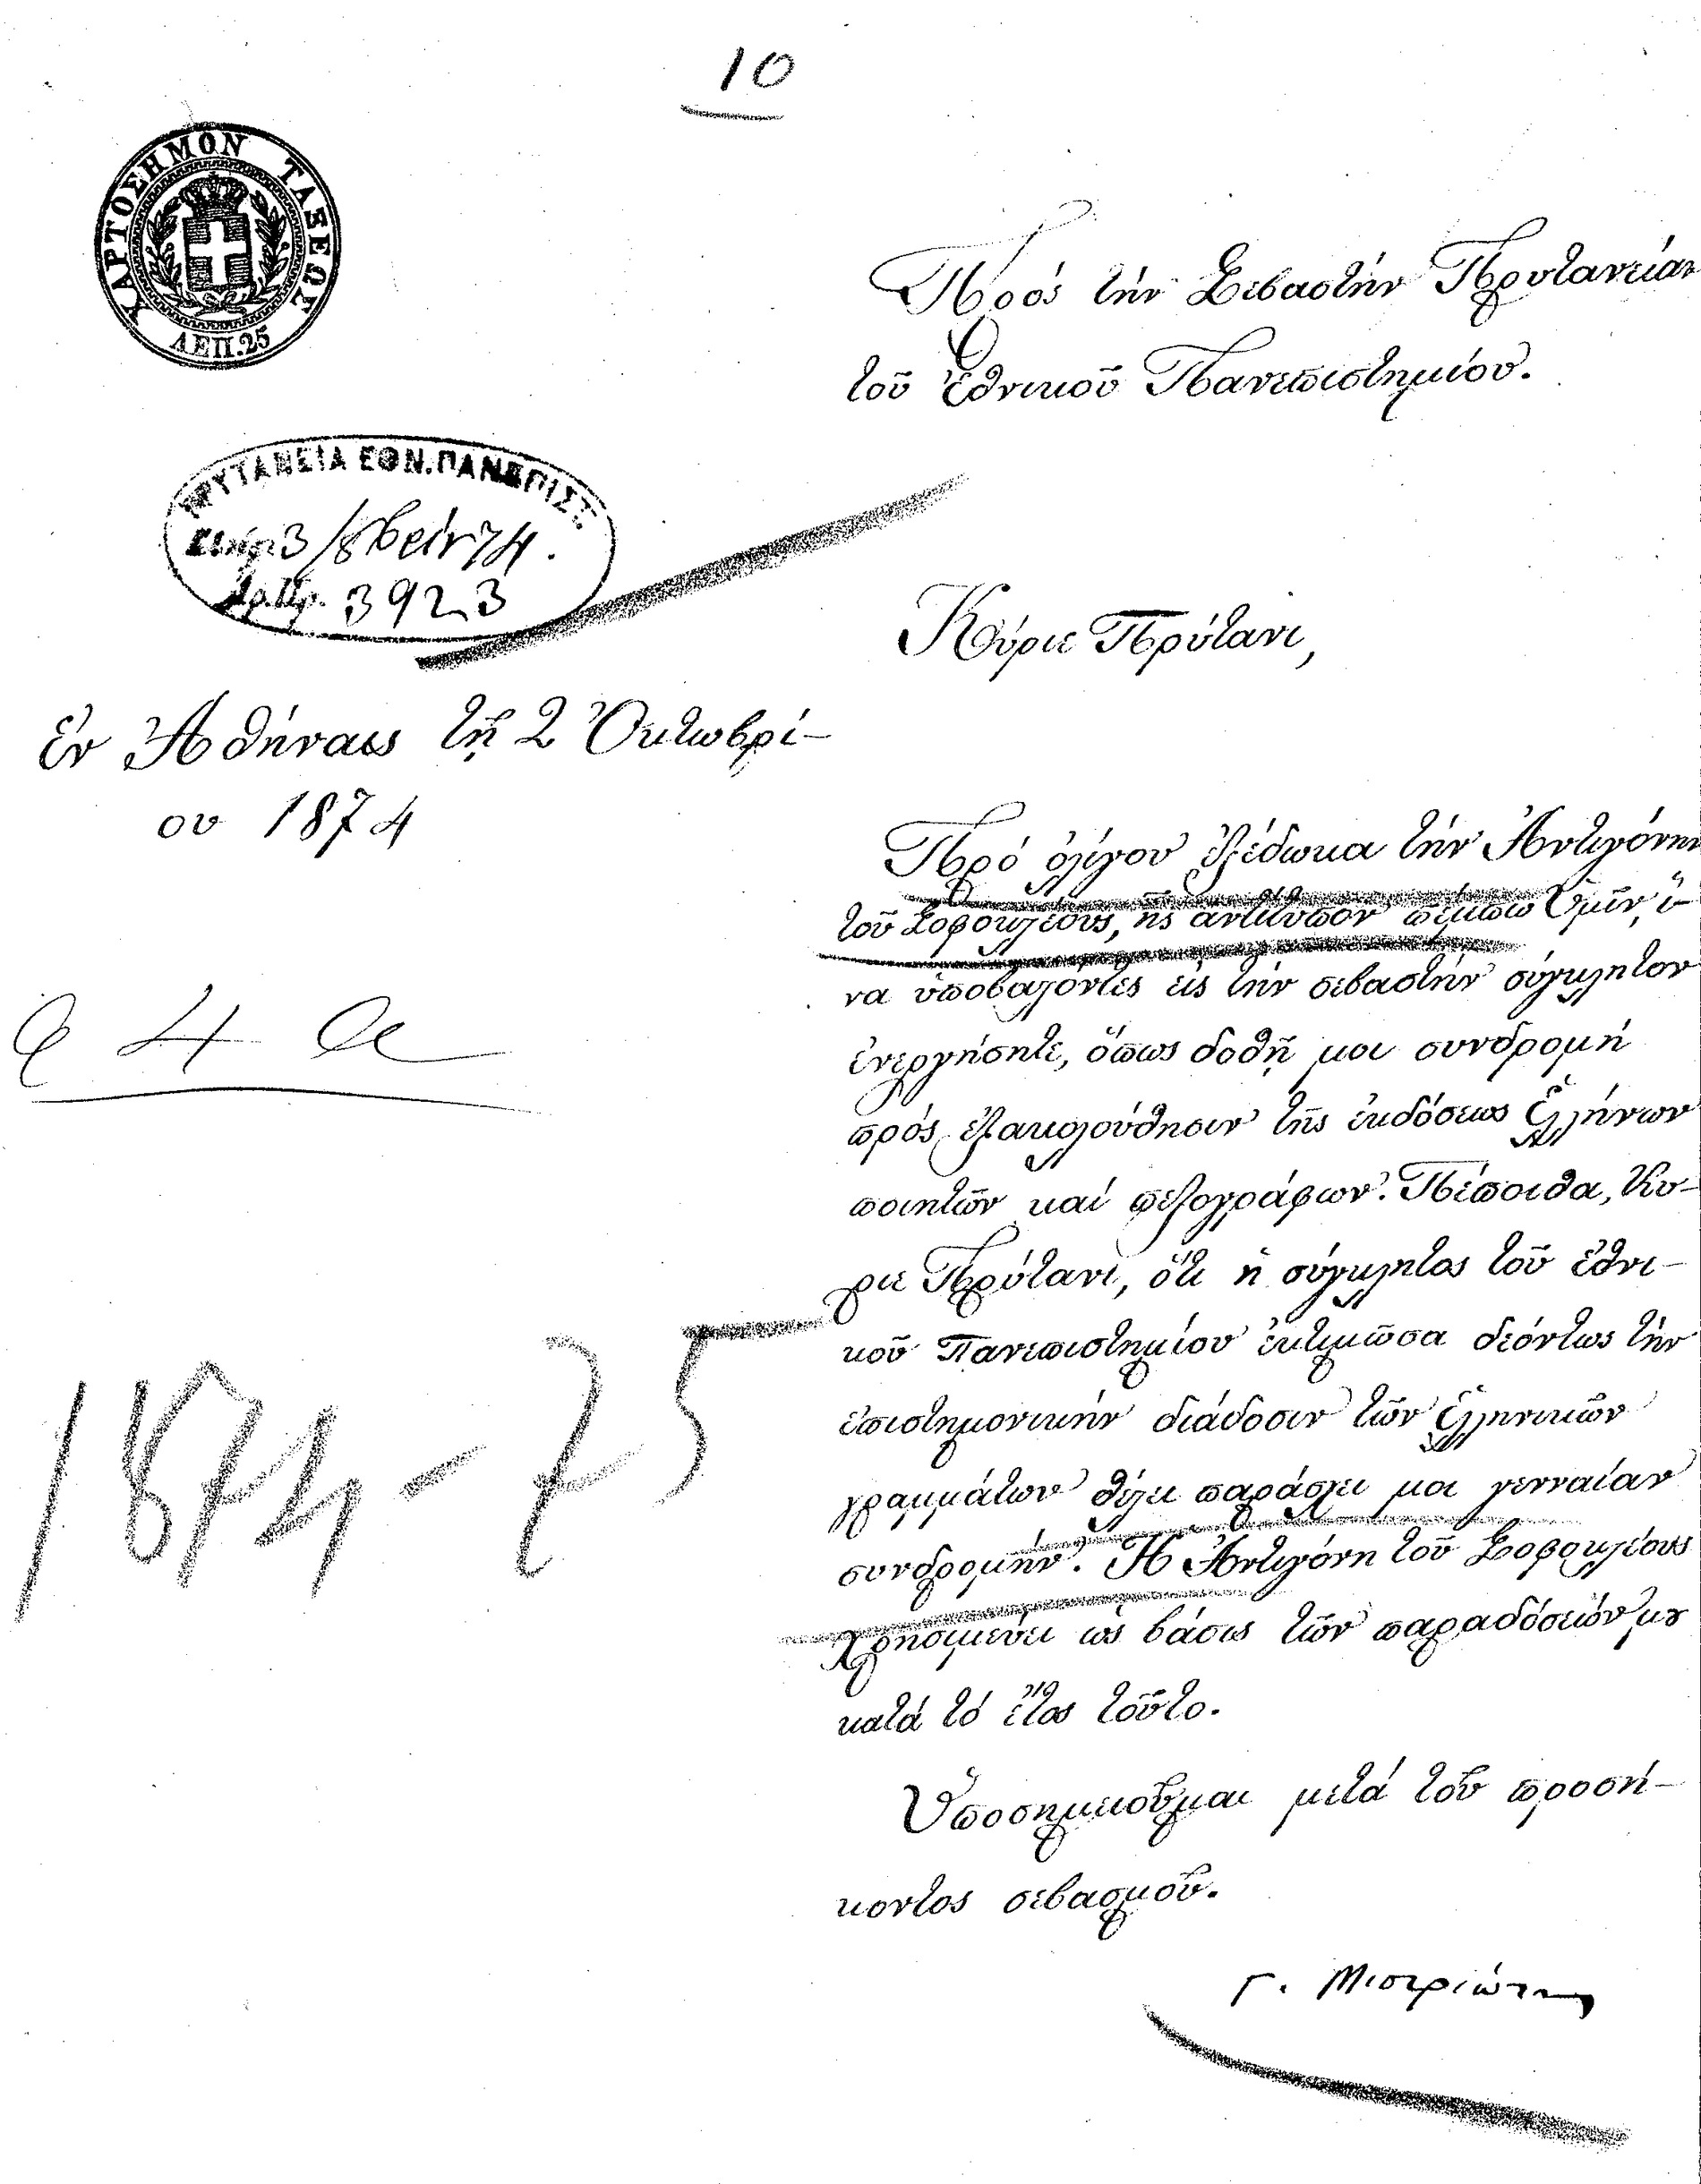 10
ΧΑΡΤΟΣΗΜΟΝ ΤΑΞΕΩΣ
ΛΕΠ.25
Πρός τήν Σεβαστήν Πρυτανείαν
τοῦ Ἐθνικοῦ Πανεπιστημίου.
ΠΡΥΤΑΝΕΙΑ ΕΘΝ.ΠΑΝΕΠΙΣΤ.
3/8βρίου 74.
Ἀρ.Πρ. 3923
Κύριε Πρύτανι,
ἐν Ἀθήναις τῇ 2 Ὀκτωβρί-
ου 1874
Πρό ὀλίγου ἐξέδωκα τήν Ἀντιγόνην
τοῦ Σοφοκλέους, ἧς ἀντίτυπον πέμπω Ὑμῖν, ἵ-
να ὑποβαλόντες εἰς τήν σεβαστήν σύγκλητον
ἐνεργήσητε, ὅπως δοθῇ μοι συνδρομή
πρός ἐξακολούθησιν τῆς ἐκδόσεως Ἑλλήνων
ποιητῶν καί πεζογράφων. Πέποιθα, Κύ-
ριε Πρύτανι, ὅτι ἡ σύγκλητος τοῦ ἐθνι-
κοῦ Πανεπιστημίου ἐκτιμῶσα δεόντως τήν
ἐπιστημονικήν διάδοσιν τῶν Ἑλληνικῶν
γραμμάτων θέλει παράσχει μοι γενναίαν
συνδρομήν. Ἡ Ἀντιγόνη τοῦ Σοφοκλέους
χρησιμεύει ὡς βάσις τῶν παραδόσεών μου
κατά τό ἔτος τοῦτο.
Ὑποσημειοῦμαι μετά τοῦ προσή-
κοντος σεβασμοῦ.
Γ. Μιστριώτης
1874-75